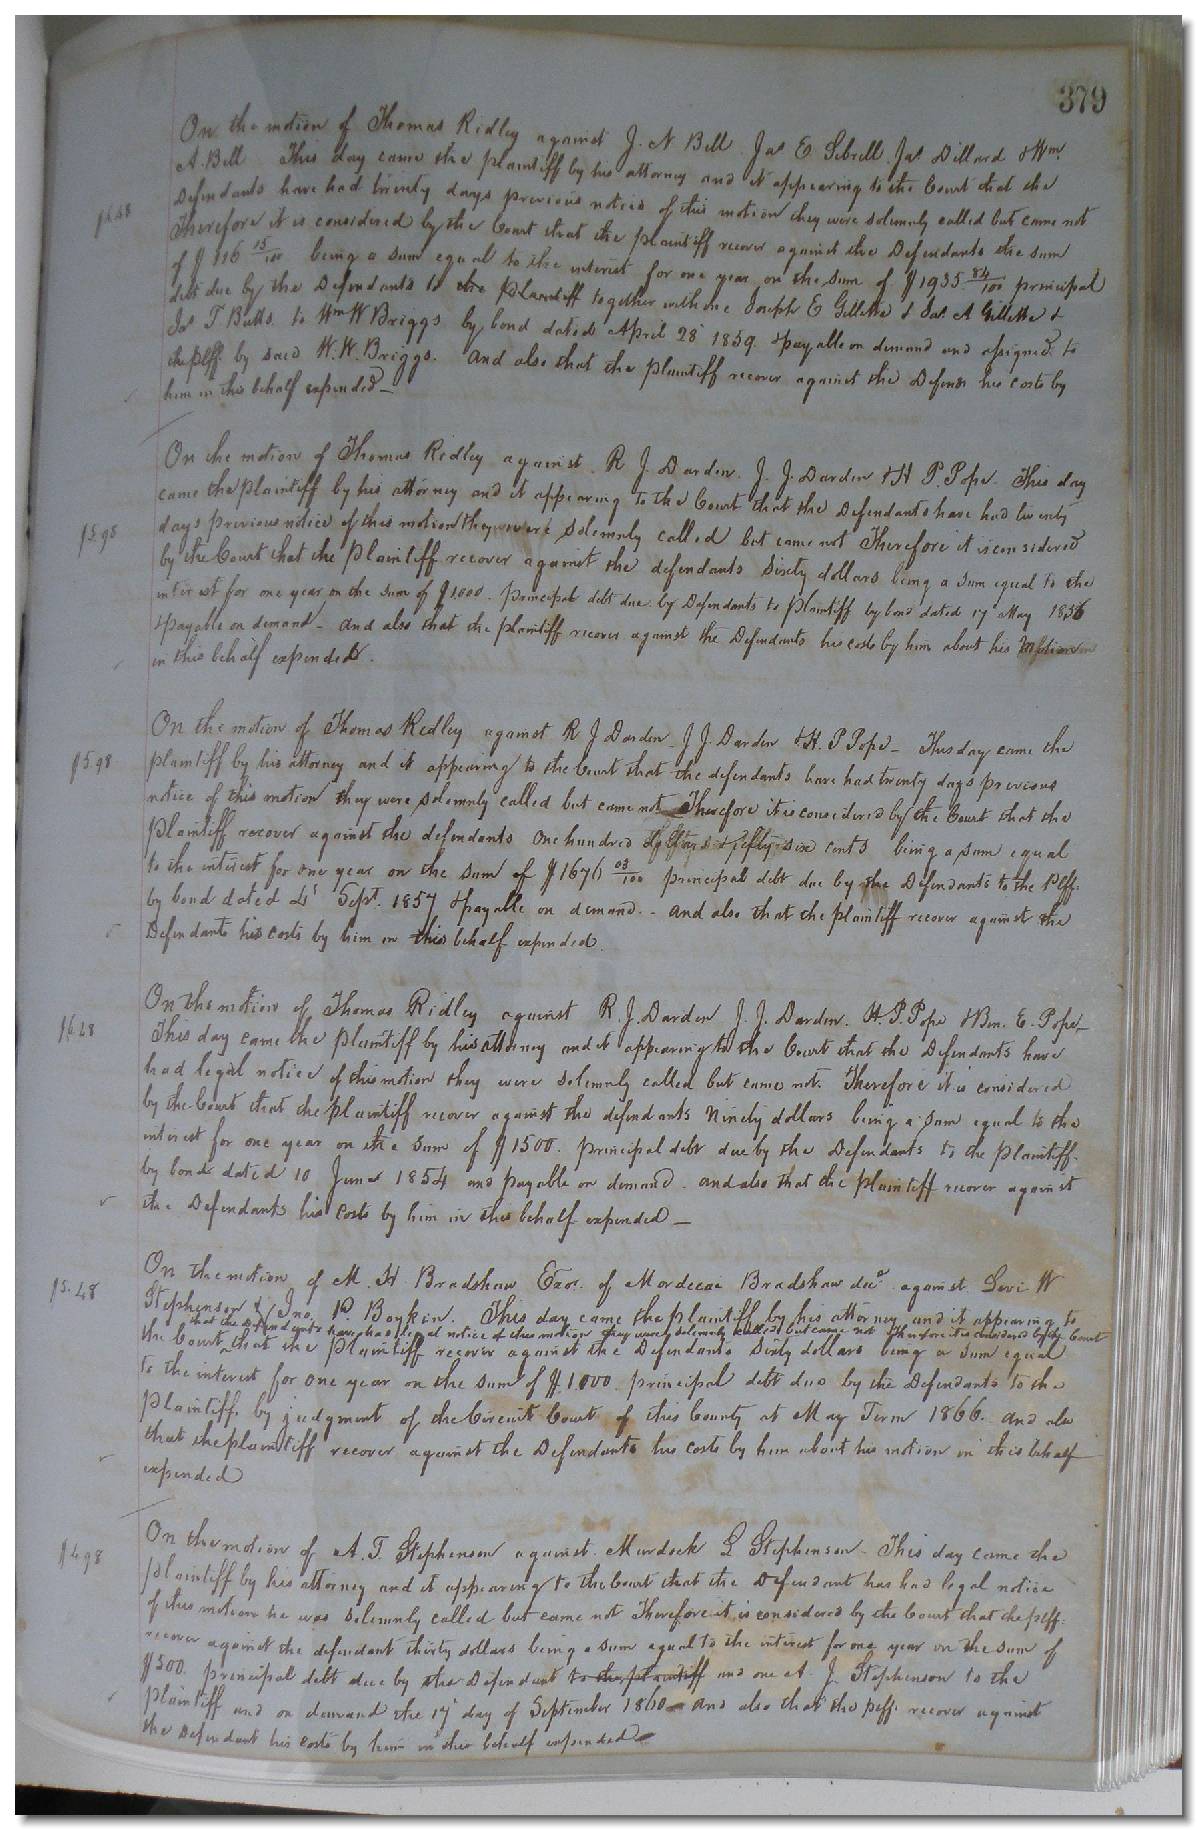 379
On the motion of Thomas Ridley against J. N Bell Jas E Sebrell Jas Dillard & Wm.
A. Bell This day came the plaintiff by his attorney and it appearing to the Court that the
Defendants have had twenty days previous notice of this motion they were solemnly called but came not
$6.48
Therefore it is considered by the Court that the plaintiff recover against the Defendants the sum
of $116 15/100 being a sum equal to the interest for one year on the sum of $1935 84/100 principal
debt due by the Defendants to the Plaintiff together with one Joseph E Gillette & Jas A Gillette &
Jas T Butts to Wm W Briggs by bond dated April 28 1859 & payable on demand and assigned to
the plff by said W. W. Briggs. And also that the plaintiff recover against the Defense his costs by
him in this behalf expended —
On the motion of Thomas Ridley against R J. Darden J. J. Darden & H P. Pope. This day
came the plaintiff by his attorney and it appearing to the Court that the Defendants have had twenty
$5.98
days previous notice of this motion they were solemnly called but came not Therefore it is considered
by the Court that the Plaintiff recover against the defendants Sixty dollars being a sum equal to the
interest for one year on the sum of $1000. principal debt due by Defendants to Plaintiff by bond dated 17 May 1856
& payable on demand – and also that the plaintiff recover against the Defendants his costs by him about his Motion
in this behalf expended.
On the motion of Thomas Ridley against R J Darden J J. Darden & H. P Pope – This day came the
$5.98
plaintiff by his attorney and it appearing to the Court that the defendants have had twenty days previous
notice of this motion they were solemnly called but came not Therefore it is considered by the Court that the
Plaintiff recover against the defendants One hundred dollars & fifty six cents being a sum equal
to the interest for one year on the sum of $1676 03/100 principal debt due by the Defendants to the Plff.
by bond dated 4' Sept. 1857 & payable on demand. – and also that the plaintiff recover against the
Defendants his costs by him in this behalf expended.
On the motion of Thomas Ridley against R. J. Darden J. J. Darden. H. P. Pope & Wm. E. Pope –
$6.28
This day came the Plaintiff by his attorney and it appearing to the Court that the Defendants have
had legal notice of this motion they were solemnly called but came not. Therefore it is considered
by the Court that the plaintiff recover against the defendants Ninety dollars being a sum equal to the
interest for one year on the sum of $1500. principal debt due by the Defendants to the plaintiff.
by bond dated 10 June 1854 and payable on demand. and also that the plaintiff recover against
the Defendants his costs by him in this behalf expended —
On the motion of M. H Bradshaw Exor. of Mordecai Bradshaw decd against Levi W
$5.48
Stephenson & Jno. P. Boykin. This day came the plaintiff by his attorney and it appearing to
that the Defendants have had legal notice of this motion they were solemnly called but came not Therefore it is considered by the Court
the Court that the Plaintiff recover against the Defendants Sixty dollars being a sum equal
to the interest for one year on the sum of $1.000. principal debt due by the Defendants to the
Plaintiff. by judgment of the Circuit Court of this County at May Term 1866. and also
that the plaintiff recover against the Defendants his costs by him about his motion in this behalf
expended
On the motion of A. T. Stephenson against. Murdock L Stephenson – This day came the
$4.98
plaintiff by his attorney and it appearing to the Court that the Defendant has had legal notice
of this motion he was solemnly called but came not Therefore it is considered by the Court that the plff.
recover against the defendant thirty dollars being a sum equal to the interest for one year on the sum of
$500. principal debt due by the Defendant to the plaintiff and one A. J. Stephenson to the
plaintiff and on demand the 17 day of September 1860 – and also that the plff. recover against
the Defendant his costs by him in this behalf expended –